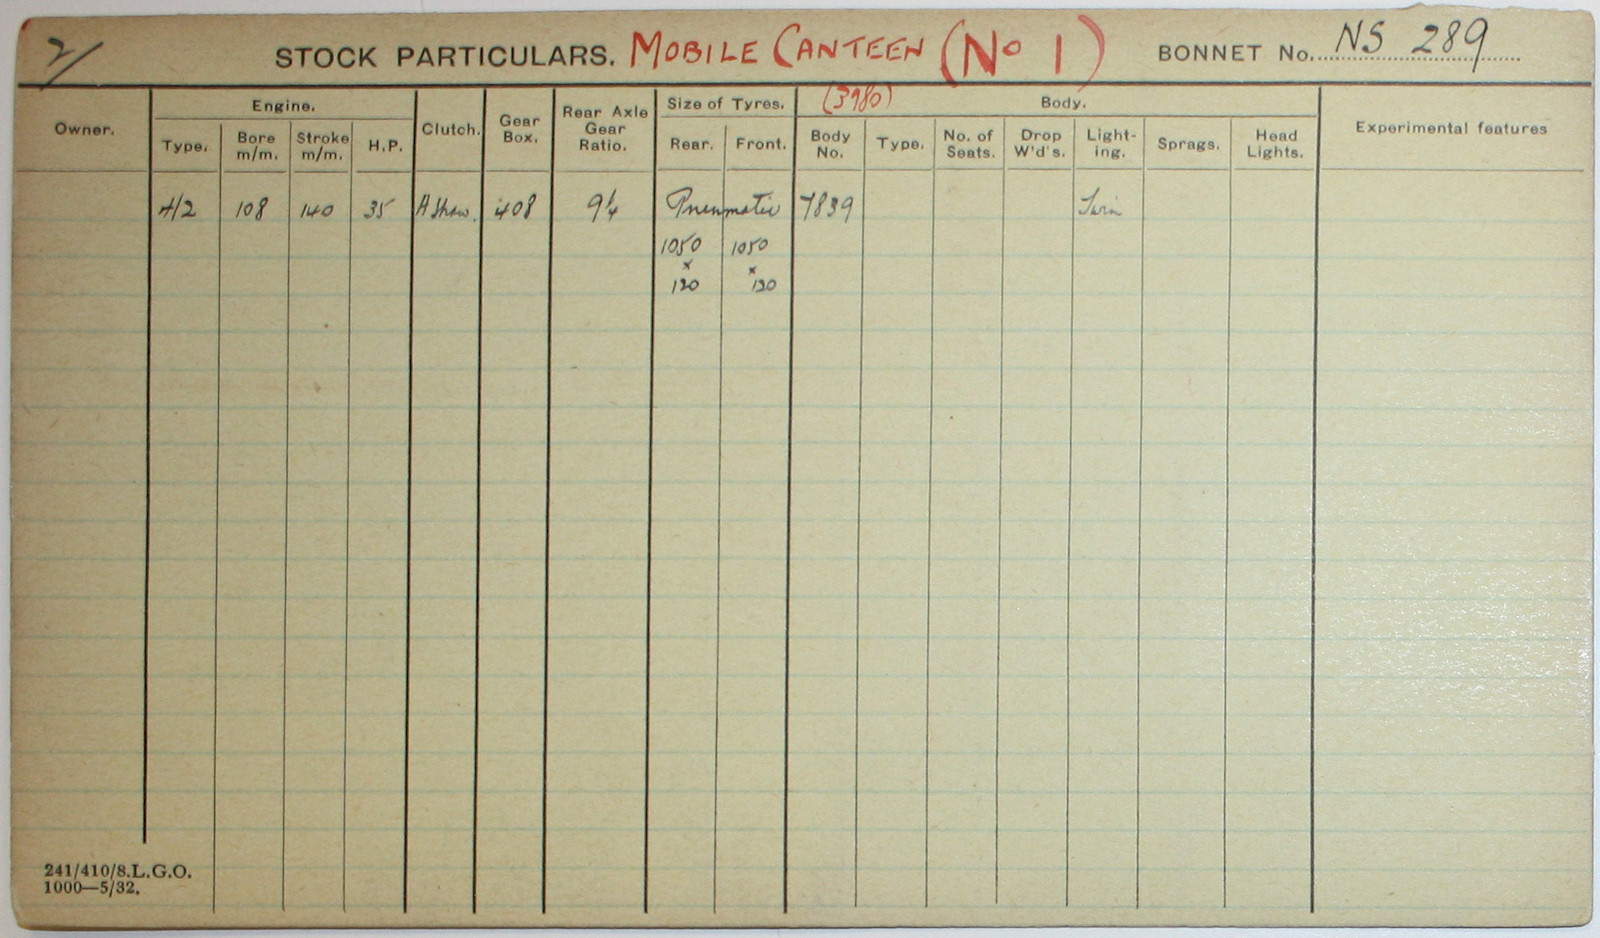 2/
STOCK PARTICULARS. MOBILE CANTEEN (No 1) BONNET No. NS 289
Owner. Engine. Clutch. Gear Box. Rear Axle Gear Ratio. Size of Tyres. (3980) Body. Experimental features
Type. Bore m/m. Stroke m/m. H.P. Rear. Front. Body No. Type. No. of Seats. Drop W'd's. Light-ing. Sprags. Head Lights.
108 140 35 A Shaw. 408 9¼ Pneumatic 7839 Twin
1050 1050
x x
120 120
241/410/8.L.G.O.
1000—5/32.